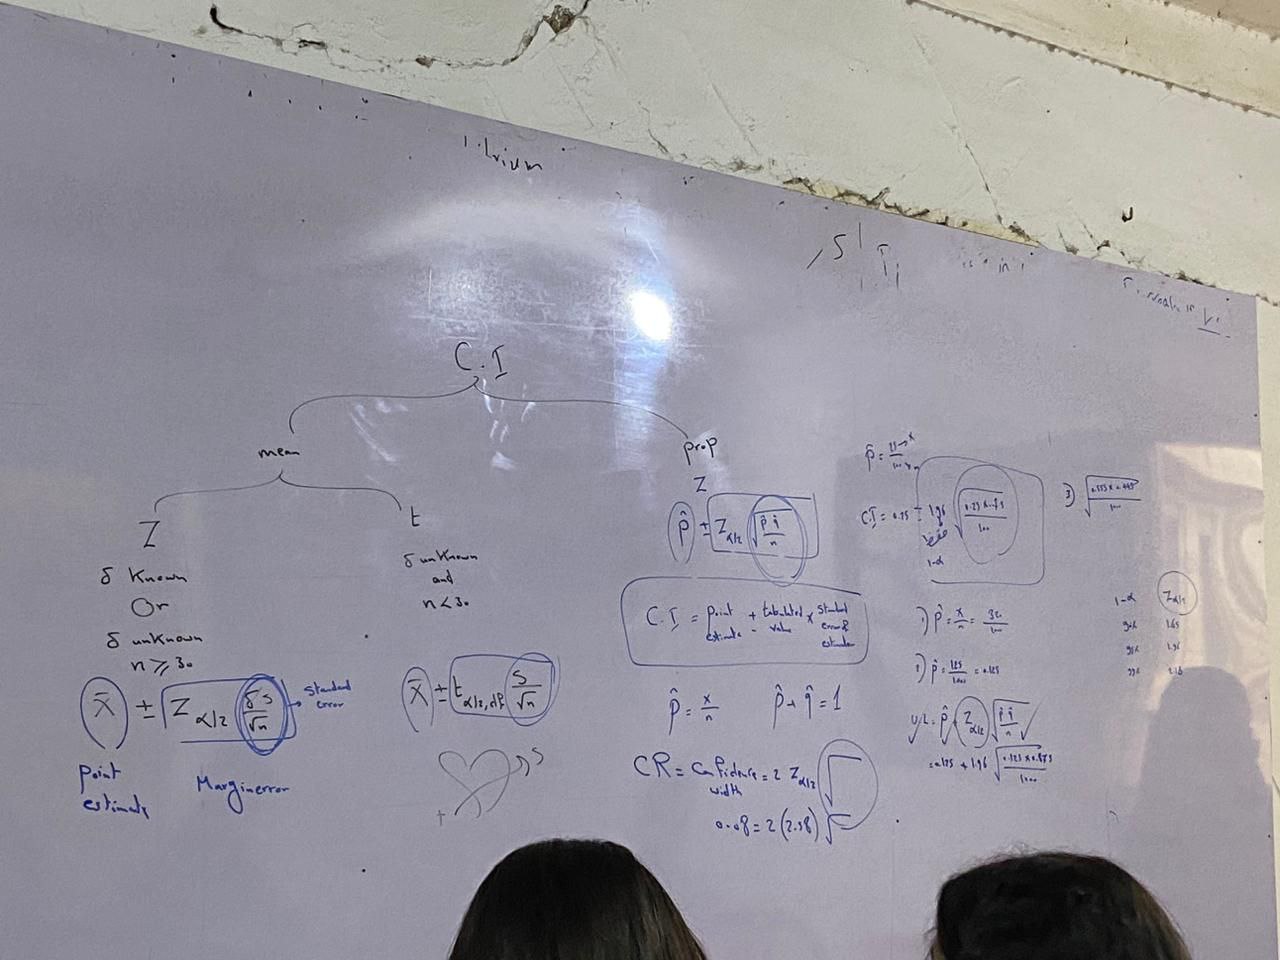 C.I
mean
prop
Z
δ Known
Or
δ unknown
n ≥ 30
X̄ ± Z α/2 δ S / √n
Standard error
point estimate
Margin error
t
δ unknown
and
n < 30
X̄ ± t α/2, df S / √n
Z
p̂ ± Z α/2 √(p̂ q̂ / n)
C.I = point estimate ± tabulated value × Standard error of estimate
p̂ = x / n
p̂ + q̂ = 1
CR = Confidence width = 2 Z α/2 √
0.08 = 2 (2.58) √
p̂ = 25 → x / 100 → n
C.I = 0.25 ± 1.96 √(0.25 × 0.75 / 100)
1-α
1) p̂ = x / n = 32 / 100
2) p̂ = 125 / 1000 = 0.125
U.L = p̂ + Z α/2 √(p̂ q̂ / n)
= 0.125 + 1.96 √(0.125 × 0.875 / 1000)
3) √(0.555 × 0.445 / 100)
1-α Z α/2
90% 1.65
95% 1.96
99%